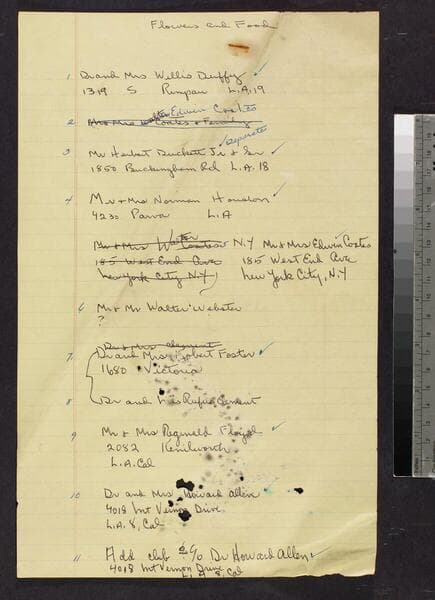 Flowers and Food
1 Dr and Mrs Willis Duffy ✓
1319 S Rimpau L.A, 19
2 Mr Mrs Walter Edwin Coates
Coates & Family
seperate
3 Mr Herbert Duckett Jr & Sr ✓
1850 Buckingham Rd L.A. 18
4 Mr & Mrs Norman Houston ✓
4230 Parva L.A
Mr & Mrs Walter Coates N.Y Mr & Mrs Edwin Coates
185 West End Ave 185 West End Ave
New York City N.Y New York City, N.Y
6 Mr & Mr Walter Webster
?
Dr & Mrs Clement
7 Dr and Mrs Robert Foster ✓
1680 Victoria
8 Dr and Mrs Rufus Clement
9 Mr & Mrs Reginald Floyd ✓
2082 Kenilworth
L.A. Cal
10 Dr and Mrs Howard Allen ✓
4018 Mt Vernon Drive
L.A. 8, Cal
11 Add club c/o Dr Howard Allen ✓
4018 Mt Vernon Drive
L.A 8, Cal